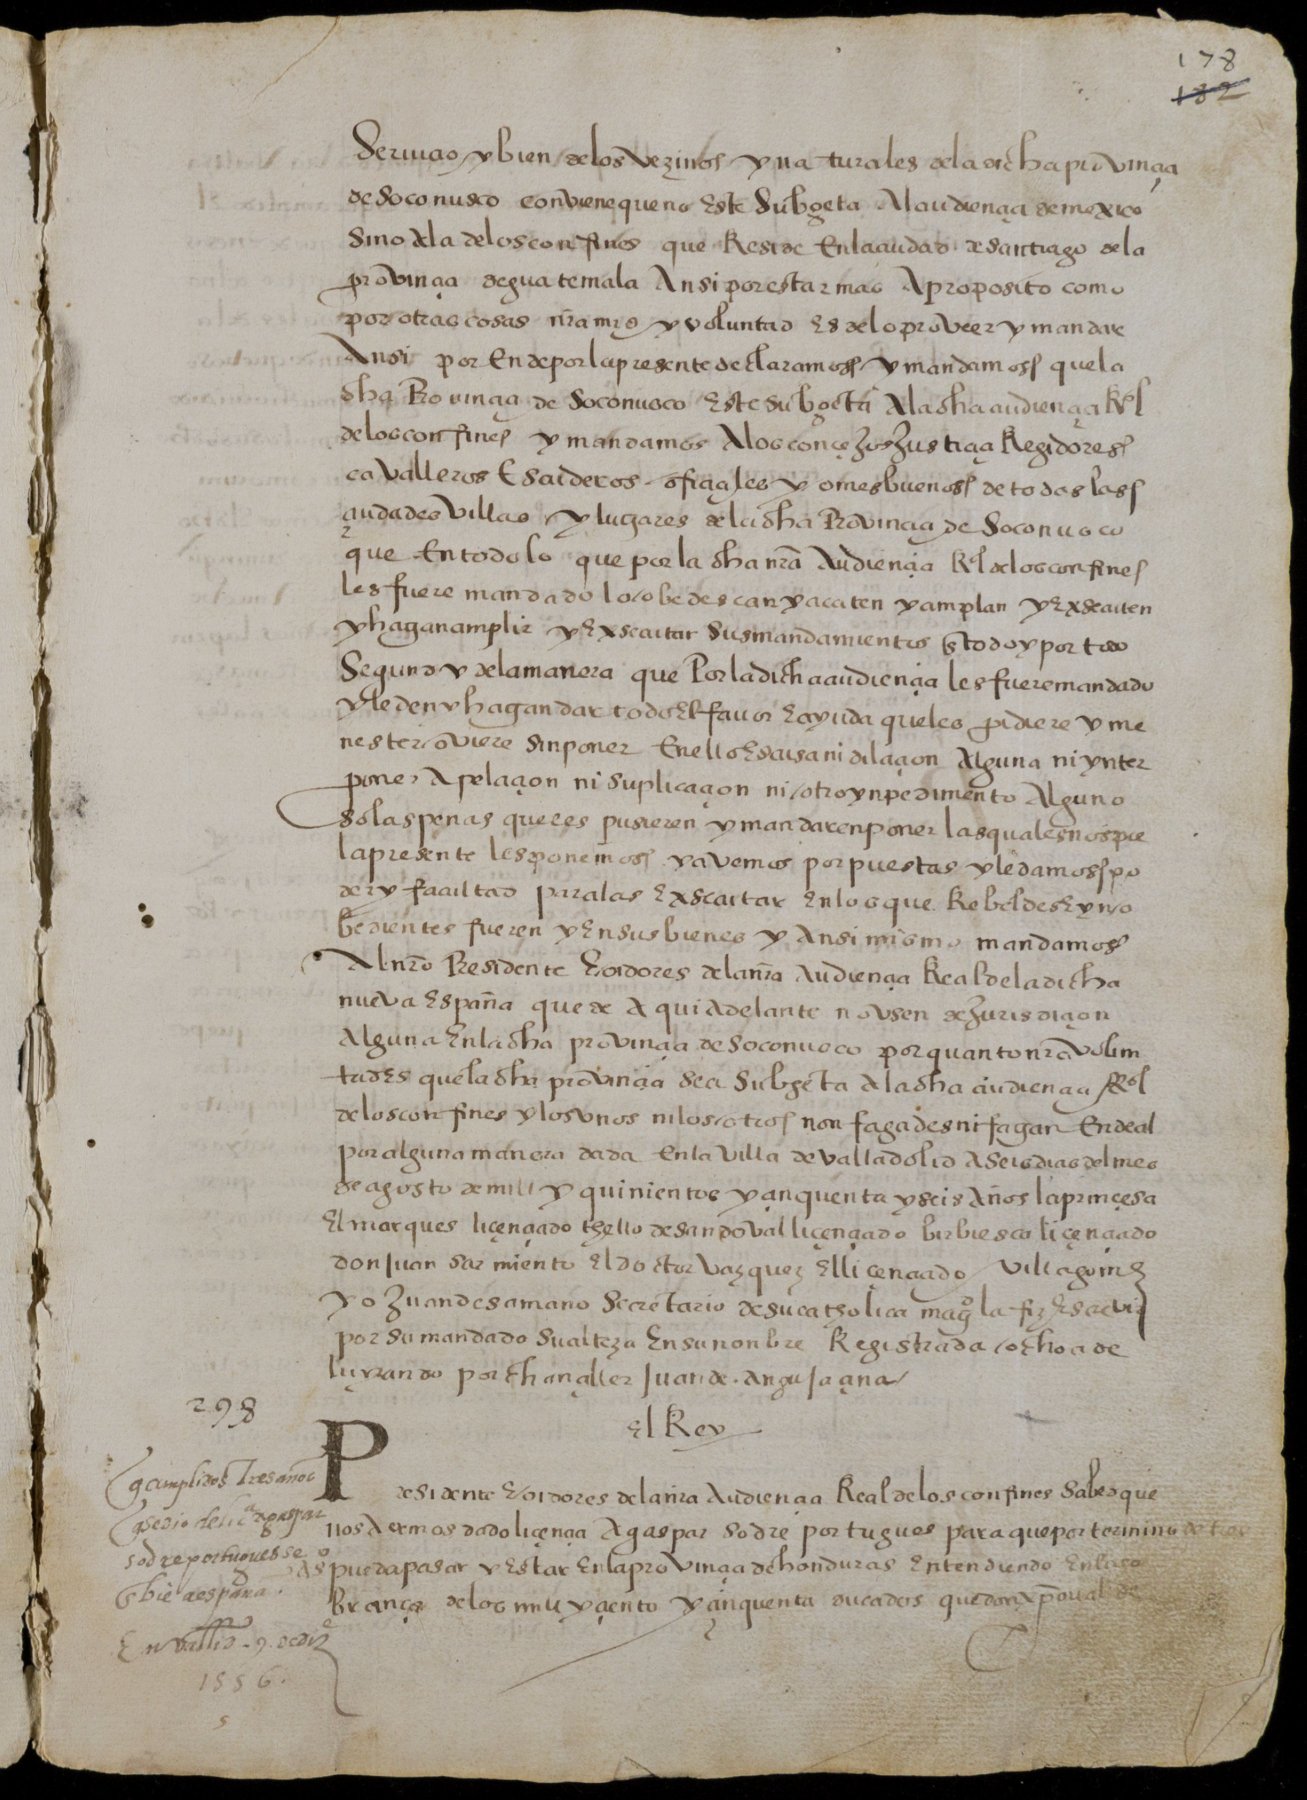 178
182
Seruiçio y bien de los Vezinos y naturales de la dicha prouinçia
de Soconusco conviene que no Este Subgeta Al audiençia de mexico
Sino A la de los confines que Reside En la çiudad de santiago de la
prouinçia de guatemala Ansi por estar mas A proposito como
por otras cosas nra mrd y voluntad Es de lo proveer y mandar
Ansi por Ende por la presente declaramos y mandamos que la
dha Prouinçia de Soconusco Este subgeta A la dha audiençia Rl
de los confines y mandamos A los conçejos Justiçia Regidores
cavalleros Escuderos ofiçiales y omes buenos de todas las
çiudades Villas y lugares de la dha Prouinçia de Soconusco
que En todo lo que por la dha nra Audiençia Rl de los confines
les fuere mandado lo obedescan y acaten y cumplan y Executen
y hagan cumplir y Executar Sus mandamientos En todo y por todo
Segund y de la manera que Por la dicha audiençia les fuere mandado
y le den y hagan dar todo El favor E ayuda que les pidiere y me
nester oviere sin poner En ello Escusa ni dilaçion Alguna ni ynter
poner Apelaçion ni suplicaçion ni otro ynpedimento Alguno
so las penas que les pusieren y mandaren poner las quales nos por
la presente les ponemos y avemos por puestas y le damos po
der y facultad para las Executar En los que Rebeldes E yno
bedientes fueren y En sus bienes y Ansi mismo mandamos
Al nro Presidente E oidores de la nra Audiençia Real de la dicha
nueva España que de Aqui Adelante no vsen de Jurisdiçion
Alguna En la dha prouinçia de Soconusco por quanto nra volun
tad Es que la dha prouinçia sea Subgeta A la dha audiençia Rl
de los confines y los vnos ni los otros non fagades ni fagan Ende al
por alguna manera dada En la Villa de Valladolid A seis dias del mes
de agosto de mill y quinientos y çinquenta y seis Años la prinçesa
El marques liçençiado tello de sandoval liçençiado birbiesca liçençiado
don Juan Sarmiento El doctor Vazquez El liçençiado Villagomez
Yo Juan de samano Secretario de su catholica magd la fiz Escrevir
por su mandado Su alteza En su nonbre Registrada ochoa de
luyando por chançiller Juan de Anguçiana
298
El Rey
Presidente E oidores de la nra Audiençia Real de los confines Sabed que
nos Avemos dado liçençia A gaspar sodre portugues para que por termino de tres
as pueda pasar y Estar En la prouinçia de honduras Entendiendo En la co
brança de los mill y çiento y çinquenta ducados que don xpoual de
q cumplidos Tres años
q se dio de liça a gaspar
sodre portugues se
enbie a españa.
En vallid. 9. de diz
1556.